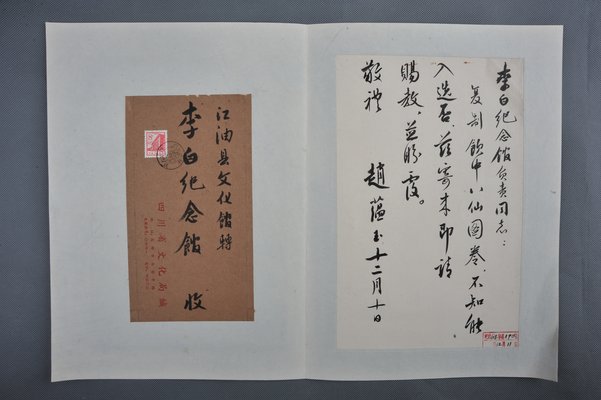 李白纪念馆负责同志：
复制飲中八仙图卷，不知能
入选否，兹寄来即請
賜教，並盼覆。
敬禮
趙蘊玉十二月十日
江油县文化馆轉
李白纪念馆 收
四川省文化局緘